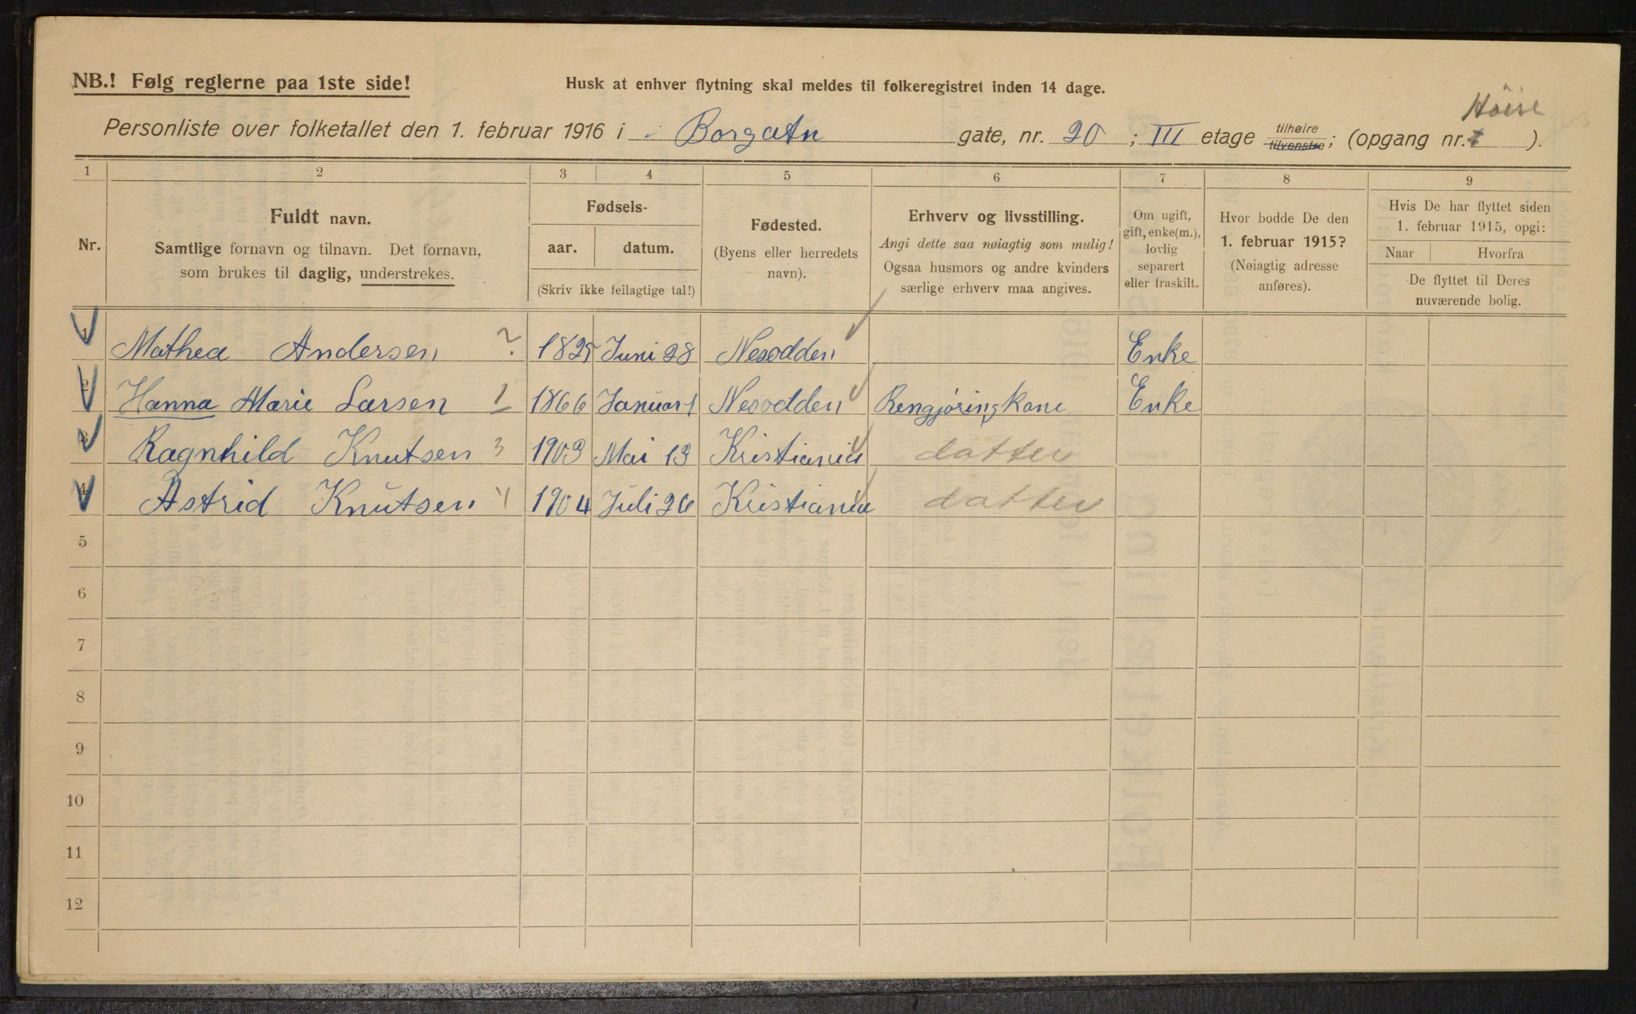 NB.! Følg reglerne paa 1ste side!
Husk at enhver flytning skal meldes til folkeregistret inden 14 dage.
Høire
Personliste over folketallet den 1. februar 1916 i Borgatn gate, nr. 20 ; III etage tilhøire tilvenstre; (opgang nr. ).
1 2 3 4 5 6 7 8 9
Nr.
Fuldt navn.
Samtlige fornavn og tilnavn. Det fornavn,
som brukes til daglig, understrekes.
Fødsels-
aar. datum.
(Skriv ikke feilagtige tal!)
Fødested.
(Byens eller herredets
navn).
Erhverv og livsstilling.
Angi dette saa nøiagtig som mulig!
Ogsaa husmors og andre kvinders
særlige erhverv maa angives.
Om ugift,
gift, enke(m.),
lovlig
separert
eller fraskilt.
Hvor bodde De den
1. februar 1915?
(Nøiagtig adresse
anføres).
Hvis De har flyttet siden
1. februar 1915, opgi:
Naar Hvorfra
De flyttet til Deres
nuværende bolig.
1 Mathea Andersen 2 Juni 28 Nesodden Enke
2 Hanna Marie Larsen 1 1866 Januar 1 Nesodden Rengjøringkone Enke
3 Ragnhild Knutsen 3 1903 Mai 13 Kristiania datter
4 Astrid Knutsen 4 1904 Juli 26 Kristiania datter
5
6
7
8
9
10
11
12